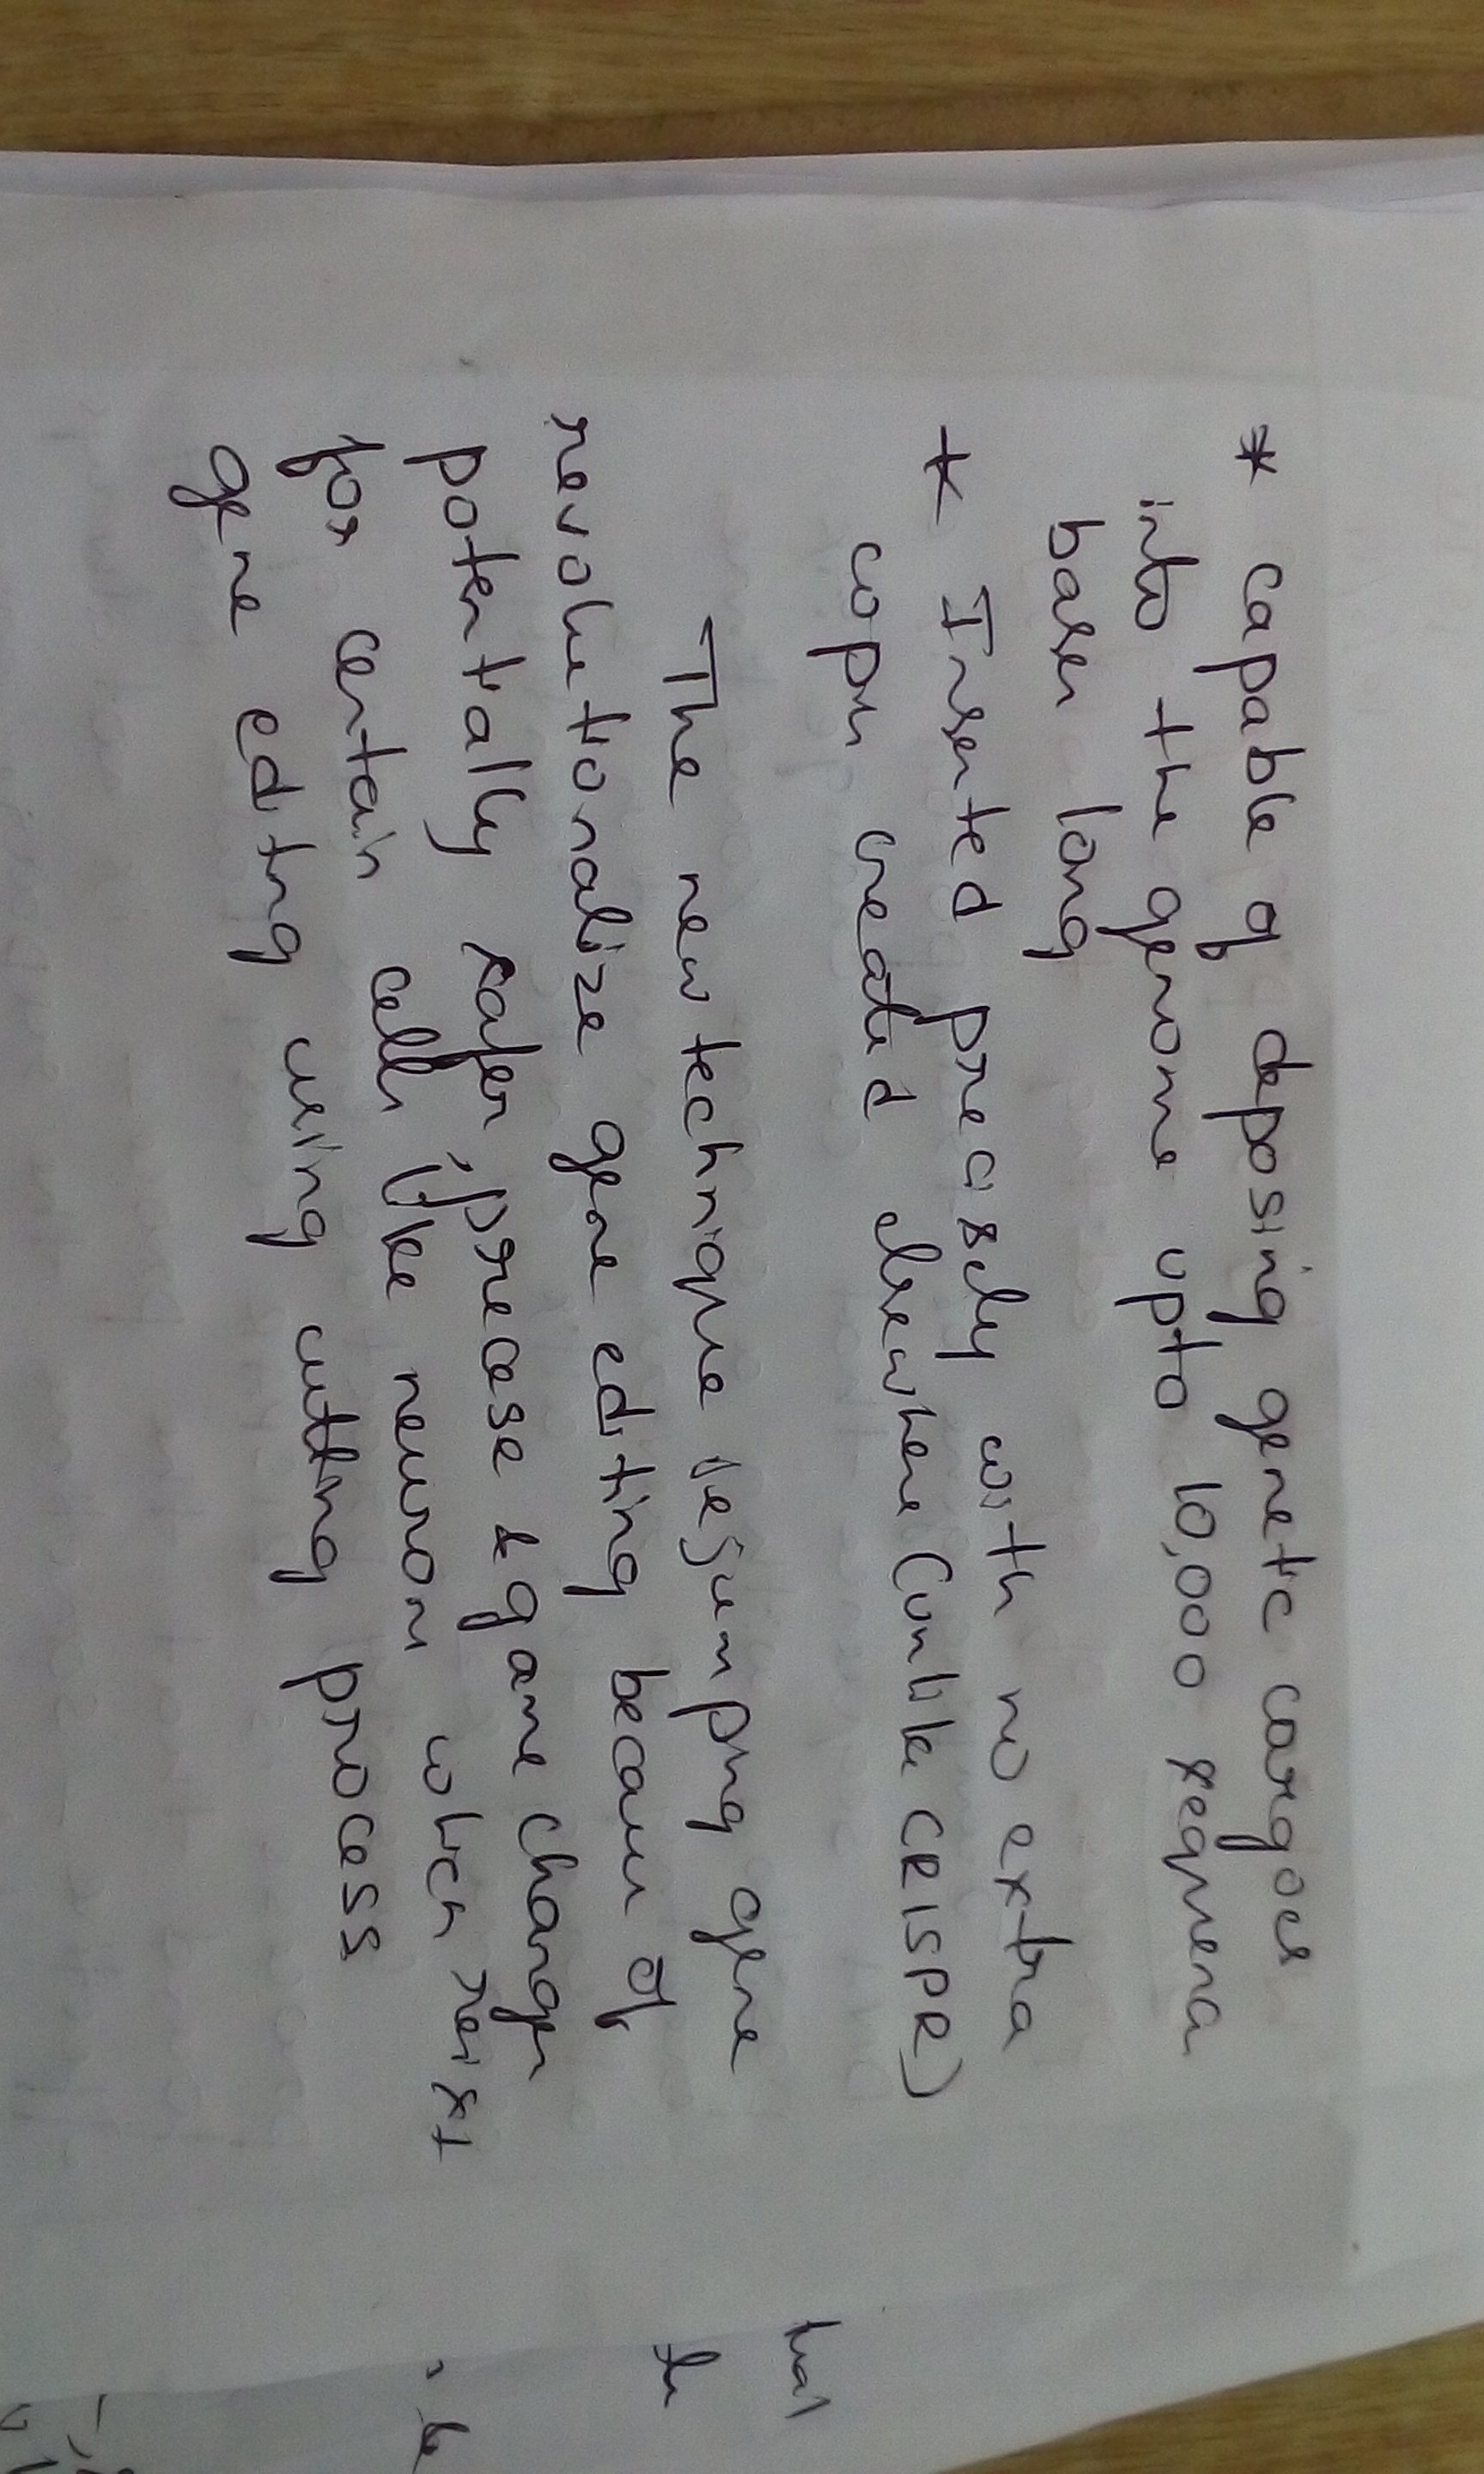 * capable of deposing genetic cargoes
into the genome upto 10,000 sequence
bases long
* Inserted precisely with no extra
copies created elsewhere (unlike CRISPR)
The new technique jumping gene
revolutionalize gene editing because of
potentially safer, precese & game changer
for certain cells like neurons which resist
gene editing using cutting process
has
the